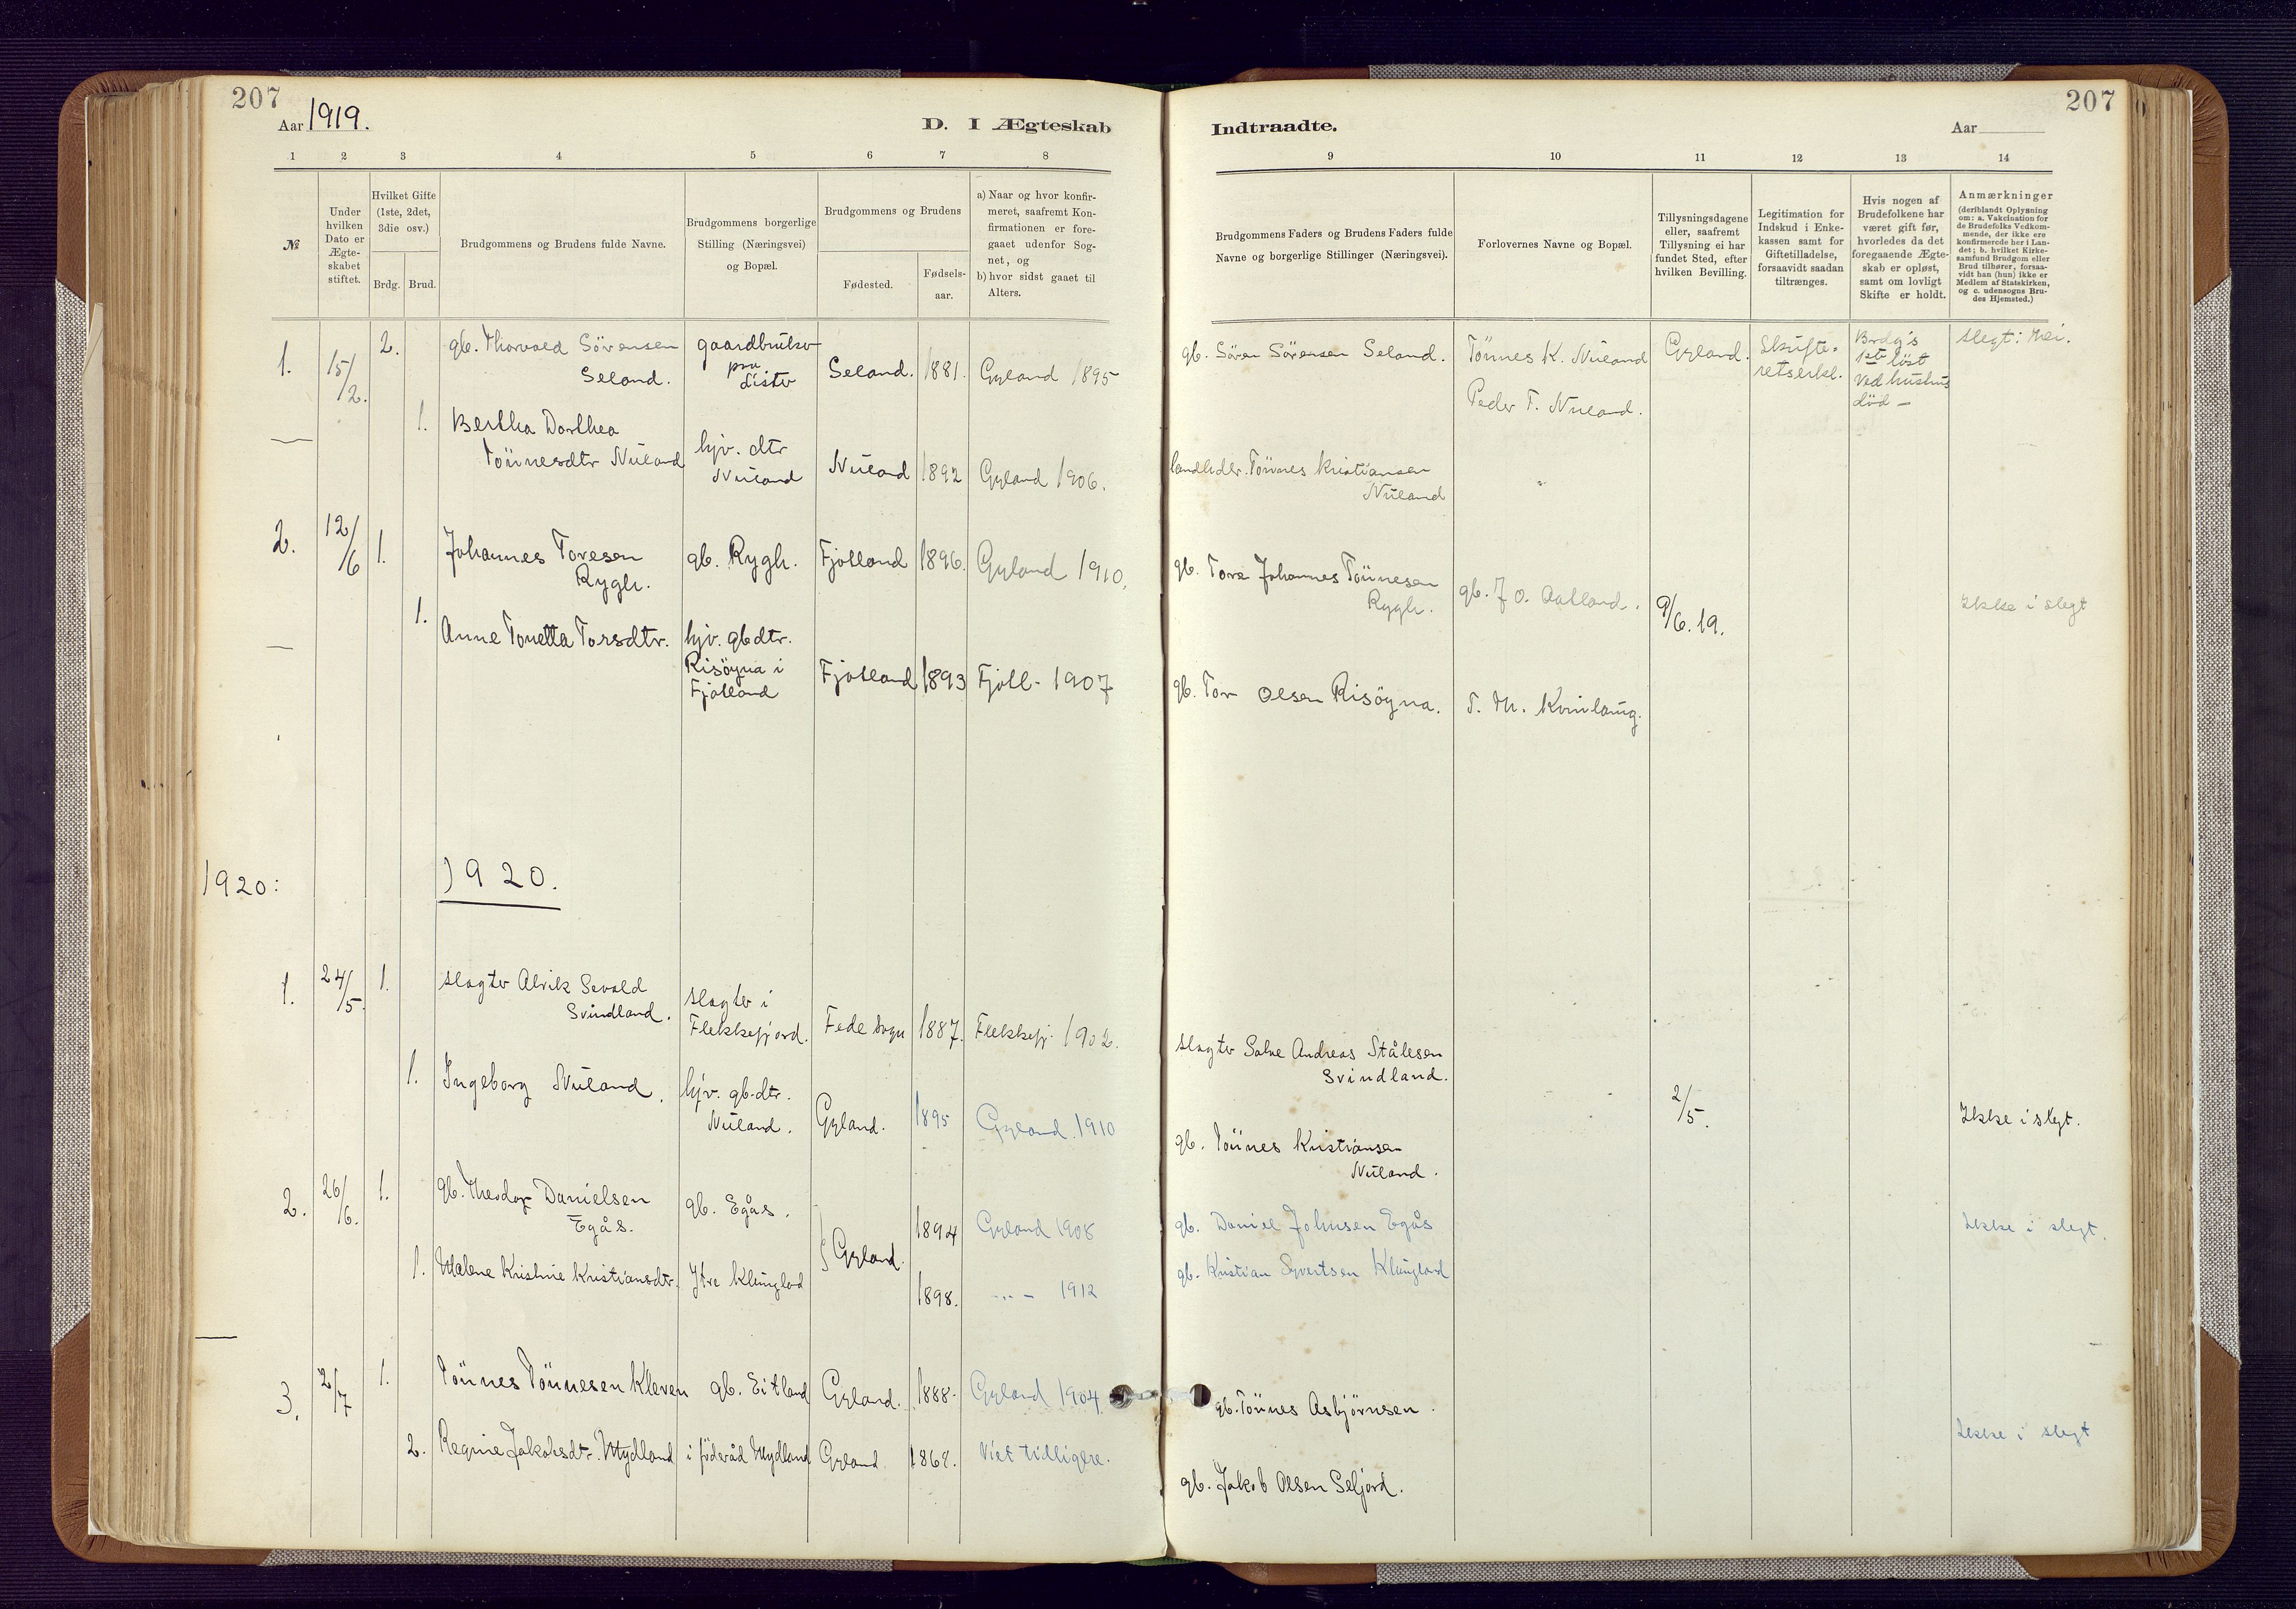 207
Aar 1919.
D. I Ægteskab
1 2 3 4 5 6 7 8
№
Under hvilken Dato er Ægte-skabet stiftet.
Hvilket Gifte (1ste, 2det, 3die osv.)
Brdg. Brud.
Brudgommens og Brudens fulde Navne.
Brudgommens borgerlige Stilling (Næringsvei) og Bopæl.
Brudgommens og Brudens
Fødested.
Fødsels-aar.
a) Naar og hvor konfir-
meret, saafremt Kon-
firmationen er fore-
gaaet udenfor Sog-
net, og
b) hvor sidst gaaet til
Alters.
1. 15/2. 2. gb. Thorvald Sörensen
Seland.
gaardbruker
paa
Lista
Seland. 1881. Gyland 1895
1. Bertha Dorthea
Tönnesdtr Nuland
hjv. dtr
Nuland
Nuland 1892 Gyland 1906.
2. 12/6 1. Johannes Toresen
Rygh.
gb. Rygh. Fjotland 1896. Gyland 1910.
1. Anne Tonetta Torsdtr.
hjv. gbdtr.
Risöyna i
Fjotland
Fjotland 1893 Fjotl- 1907
1920: 1920.
1. 24/5. 1. slagter Alrik Sevald
Svindland.
slagter i
Flekkefjord.
Fede sogn 1887. Flekkefj. 1902.
1. Ingeborg Nuland.
hjv. gb.dtr.
Nuland.
Gyland. 1895 Gyland. 1910
2. 26/6. 1. gb. Theodor Danielsen
Egås.
gb. Egås. 1894 Gyland 1908
} Gyland.
1. Malene Kristine Kristiansdtr. Ytre Klungland 1898. -..- 1912
3. 2/7 1. Tönnes Tönnesen Kleven gb. Eitland Gyland. 1888- Gyland 1904
2. Regine Jakobsdtr. Mydland i föderåd Mydland Gyland 1868. Viet tidligere.
207
Indtraadte.
Aar
9 10 11 12 13 14
Brudgommens Faders og Brudens Faders fulde
Navne og borgerlige Stillinger (Næringsvei).
Forlovernes Navne og Bopæl.
Tillysningsdagene
eller, saafremt
Tillysning ei har
fundet Sted, efter
hvilken Bevilling.
Legitimation for
Indskud i Enke-
kassen samt for
Giftetilladelse,
forsaavidt saadan
tiltrænges.
Hvis nogen af
Brudefolkene har
været gift før,
hvorledes da det
foregaaende Ægte-
skab er opløst,
samt om lovligt
Skifte er holdt.
Anmærkninger
(deriblandt Oplysning
om: a. Vakcination for
de Brudefolks Vedkom-
mende, der ikke ere
konfirmerede her i Lan-
det; b. hvilket Kirke-
samfund Brudgom eller
Brud tilhører, forsaa-
vidt han (hun) ikke er
Medlem af Statskirken,
og c. udensogns Bru-
des Hjemsted.)
gb. Sören Sörensen Seland.
Tönnes K. Nuland
Peder T. Nuland.
Gyland.
Skifte-
retserkl.
Brdg's
1ste löst
ved hustrus
död -
slegt: Nei.
landhdlr. Tönnes Kristiansen
Nuland
gb. Tore Johannes Tönnesen
Rygh.
gb. J O. Aatland.
9/6. 19.
Ikke i slegt
gb. Tor Olsen Risöyna.
T. M. Kvinlaug.
slagter Salve Andreas Stålesen
Svindland.
2/5.
Ikke i slegt.
gb. Tönnes Kristiansen
Nuland.
gb. Daniel Johnsen Egås
Ikke i slegt.
gb. Kristian Syvertsen Klungland
gb. Tönnes Asbjörnsen.
Ikke i slegt
gb. Jakob Olsen Seljord.